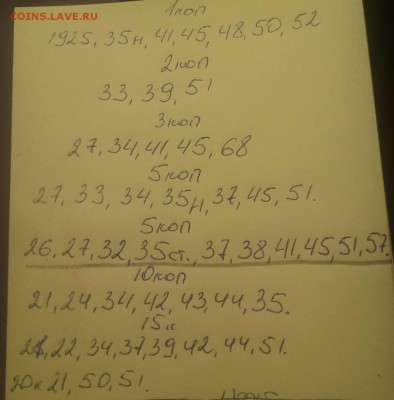 COINS.LAVE.RU
1коп
1925, 35н, 41, 45, 48, 50, 52
2коп
33, 39, 51
3коп
27, 34, 41, 45, 68
5коп
27, 33, 34, 35н, 37, 45, 51.
5коп
26, 27, 32, 35ст., 37, 38, 41, 45, 51, 57.
10коп
21, 24, 34, 42, 43, 44, 35.
15к
21, 22, 34, 37, 39, 42, 44, 51.
20к 21, 50, 51.